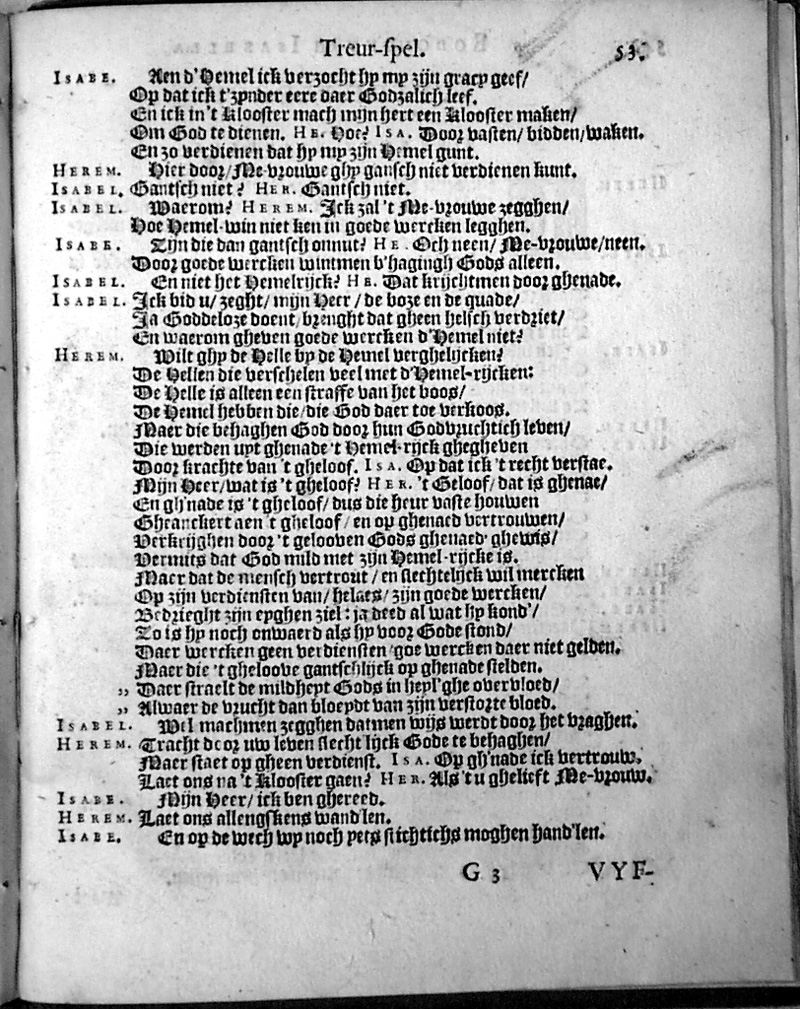 Treur-spel. 53.
ISABE. Aen d'Hemel ick verzocht hy my zijn gracy geef/
Op dat ick t'zynder eere daer Godzalich leef.
En ick in 't Klooster mach mijn hert een Klooster maken/
Om God te dienen. HE. Hoe? ISA. Door vasten/ bidden/ waken.
En zo verdienen dat hy my zijn Hemel gunt.
HEREM. Hier door/ Me-vrouwe ghy gansch niet verdienen kunt.
ISABEL. Gantsch niet? HER. Gantsch niet.
ISABEL. Waerom? HEREM. Ick zal 't Me-vrouwe zegghen/
Hoe Hemel-win niet ken in goede wercken legghen.
ISABE. Zijn die dan gantsch onnut? HE. Och neen/ Me-vrouwe/ neen.
Door goede wercken wintmen b'hagingh Gods alleen.
ISABEL. En niet het Hemelrijck? HE. Dat krijchtmen door ghenade.
ISABEL. Ick bid u/ zeght/ mijn Heer/ de boze en de quade/
Ja Goddeloze doent/ brenght dat gheen helsch verdriet/
En waerom gheven goede wercken d'Hemel niet?
HEREM. Wilt ghy de Helle by de Hemel verghelijcken?
De Hellen die verschelen veel met d'Hemel-rijcken:
De Helle is alleen een straffe van het boos/
De Hemel hebben die/ die God daer toe verkoos.
Maer die behaghen God door hun Godvruchtich leven/
Die werden uyt ghenade 't Hemel-rijck ghegheven
Door krachte van 't gheloof. ISA. Op dat ick 't recht verstae.
Mijn Heer/ wat is 't gheloof? HER. 't Geloof/ dat is ghenae/
En gh'nade is 't gheloof/ dus die heur vaste houwen
Gheanckert aen 't gheloof/ en op ghenaed vertrouwen/
Verkrijghen door 't gelooven Gods ghenaed' ghewis/
Vermits dat God mild met zijn Hemel-rijcke is.
Maer dat de mensch vertrout/ en slechtelijck wil mercken
Op zijn verdiensten van/ helaes/ zijn goede wercken/
Bedrieght zijn eyghen ziel: ja deed al wat hy kond'/
Zo is hy noch onwaerd als hy voor Gode stond/
Daer wercken geen verdiensten/ goe wercken daer niet gelden.
Maer die 't gheloove gantschlijck op ghenade stelden.
„ Daer straelt de mildheyt Gods in heyl'ghe overvloed/
„ Alwaer de vrucht dan bloeydt van zijn verstorte bloed.
ISABEL. Wel machmen zegghen datmen wijs werdt door het vraghen.
HEREM. Tracht door uw leven slecht lijck Gode te behaghen/
Maer staet op gheen verdienst. ISA. Op gh'nade ick vertrouw.
Laet ons na 't Klooster gaen? HER. Als 't u ghelieft Me-vrouw.
ISABE. Mijn Heer/ ick ben ghereed.
HEREM. Laet ons allengskens wand'len.
ISABE. En op de wech wy noch yets stichtichs moghen hand'len.
G 3 VYF-